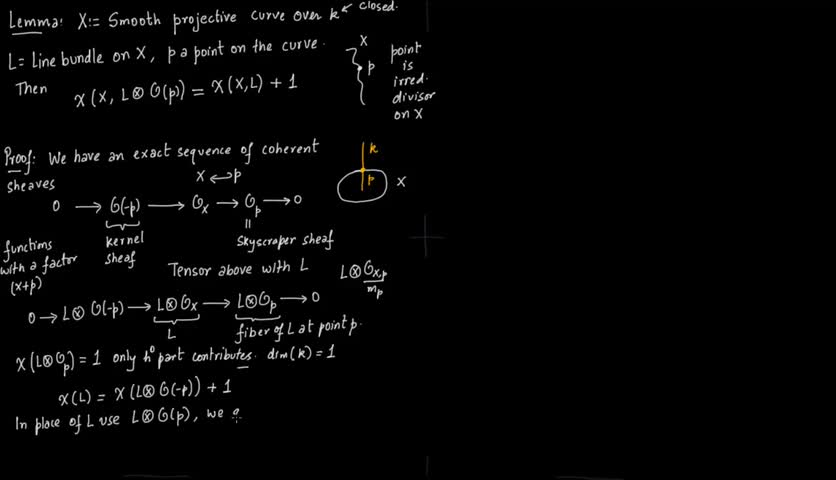 Lemma: X:= Smooth projective curve over k ← closed.
L = Line bundle on X, p a point on the curve.
Then
χ(X, L⊗O(p)) = χ(X, L) + 1
X
p
point
is
irred.
divisor
on X
Proof: We have an exact sequence of coherent
sheaves
X ↔ p
0 → O(-p) → O_X → O_p → 0
kernel
sheaf
||
skyscraper sheaf
k
p
X
functions
with a factor
(x+p)
Tensor above with L
L⊗O_{X,p}
m_p
0 → L⊗O(-p) → L⊗O_X → L⊗O_p → 0
L
fiber of L at point p.
χ(L⊗O_p) = 1 only h⁰ part contributes. dim(k) = 1
χ(L) = χ(L⊗O(-p)) + 1
In place of L use L⊗O(p), we